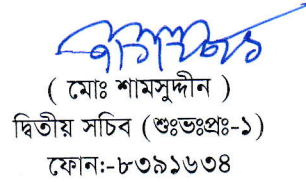 ( মোঃ শামসুদ্দীন )
দ্বিতীয় সচিব (শুঃভঃপ্রঃ-১)
ফোন:-৮৩৯১৬৩৪